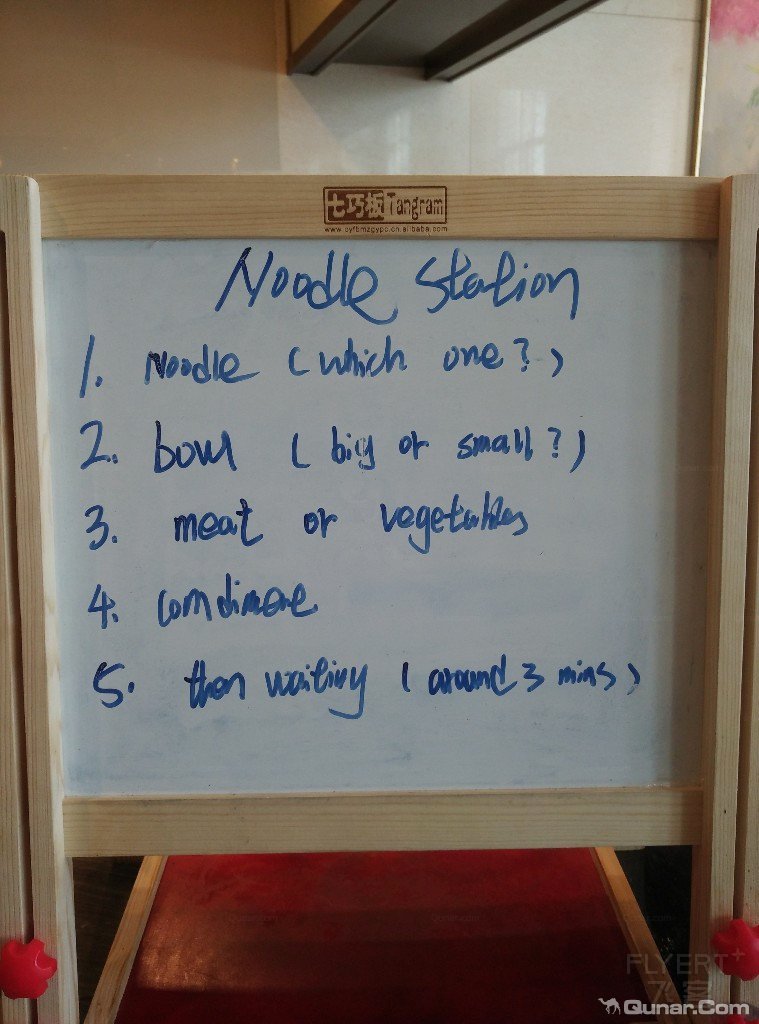 七巧板 Tangram
www.oyfbmzgypc.cn.alibaba.com
Noodle Station
1. Noodle (which one?)
2. bowl (big or small?)
3. meat or vegetables
4. condiment
5. then waiting (around 3 mins)
FLYERT+
飞客
Qunar.Com